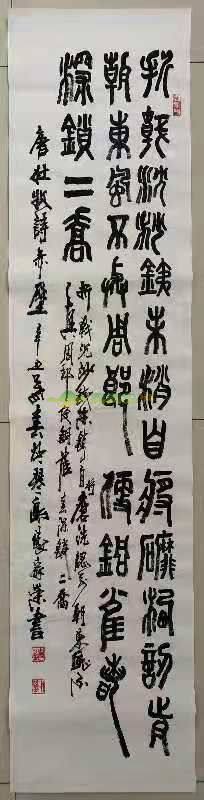 折戟沉沙鐵未銷自將磨洗認前
朝東風不與周郎便銅雀春
深鎖二喬
折戟沉沙鐵自將磨洗認前朝東風不
與周郎便銅雀春深鎖二喬
唐杜牧詩赤壁辛丑孟春書